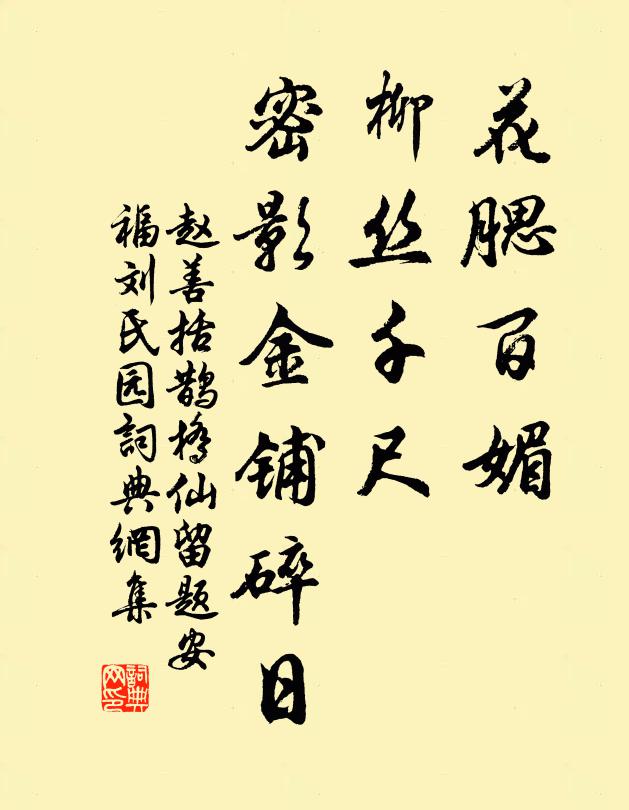 花腮百媚
柳丝千尺
密影金铺碎日
赵善括鹊桥仙留题安
福刘氏园詞典網集
詞典
网印